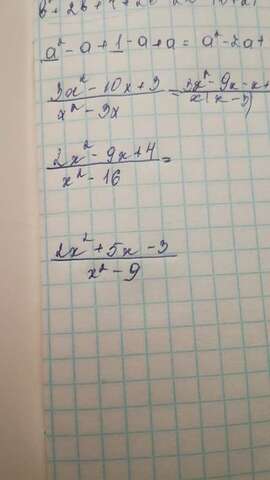 a² - a + 1 - a + a = a² - 2a +
3x² - 10x + 3 / x² - 3x = 3x² - 9x - x + / x(x - 3)
2x² - 9x + 4 / x² - 16 =
2x² + 5x - 3 / x² - 9